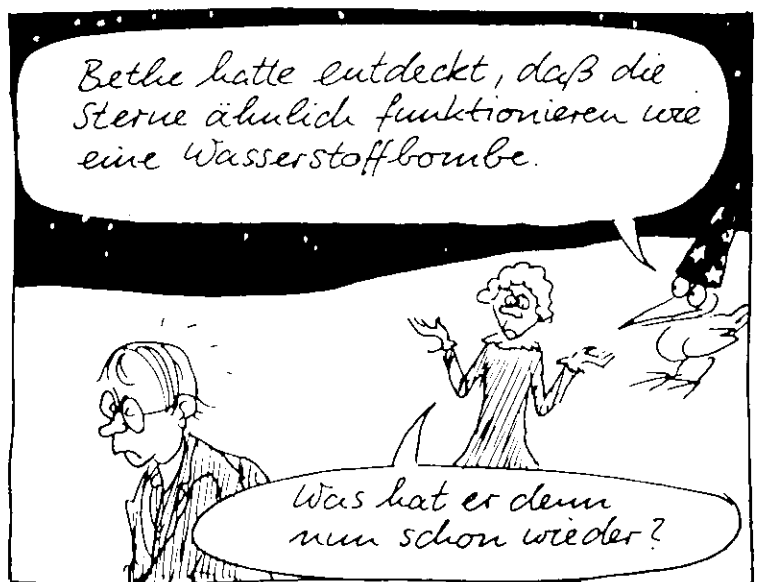 Bethe hatte entdeckt, daß die
Sterne ähnlich funktionieren wie
eine Wasserstoffbombe.
Was hat er denn
nun schon wieder?